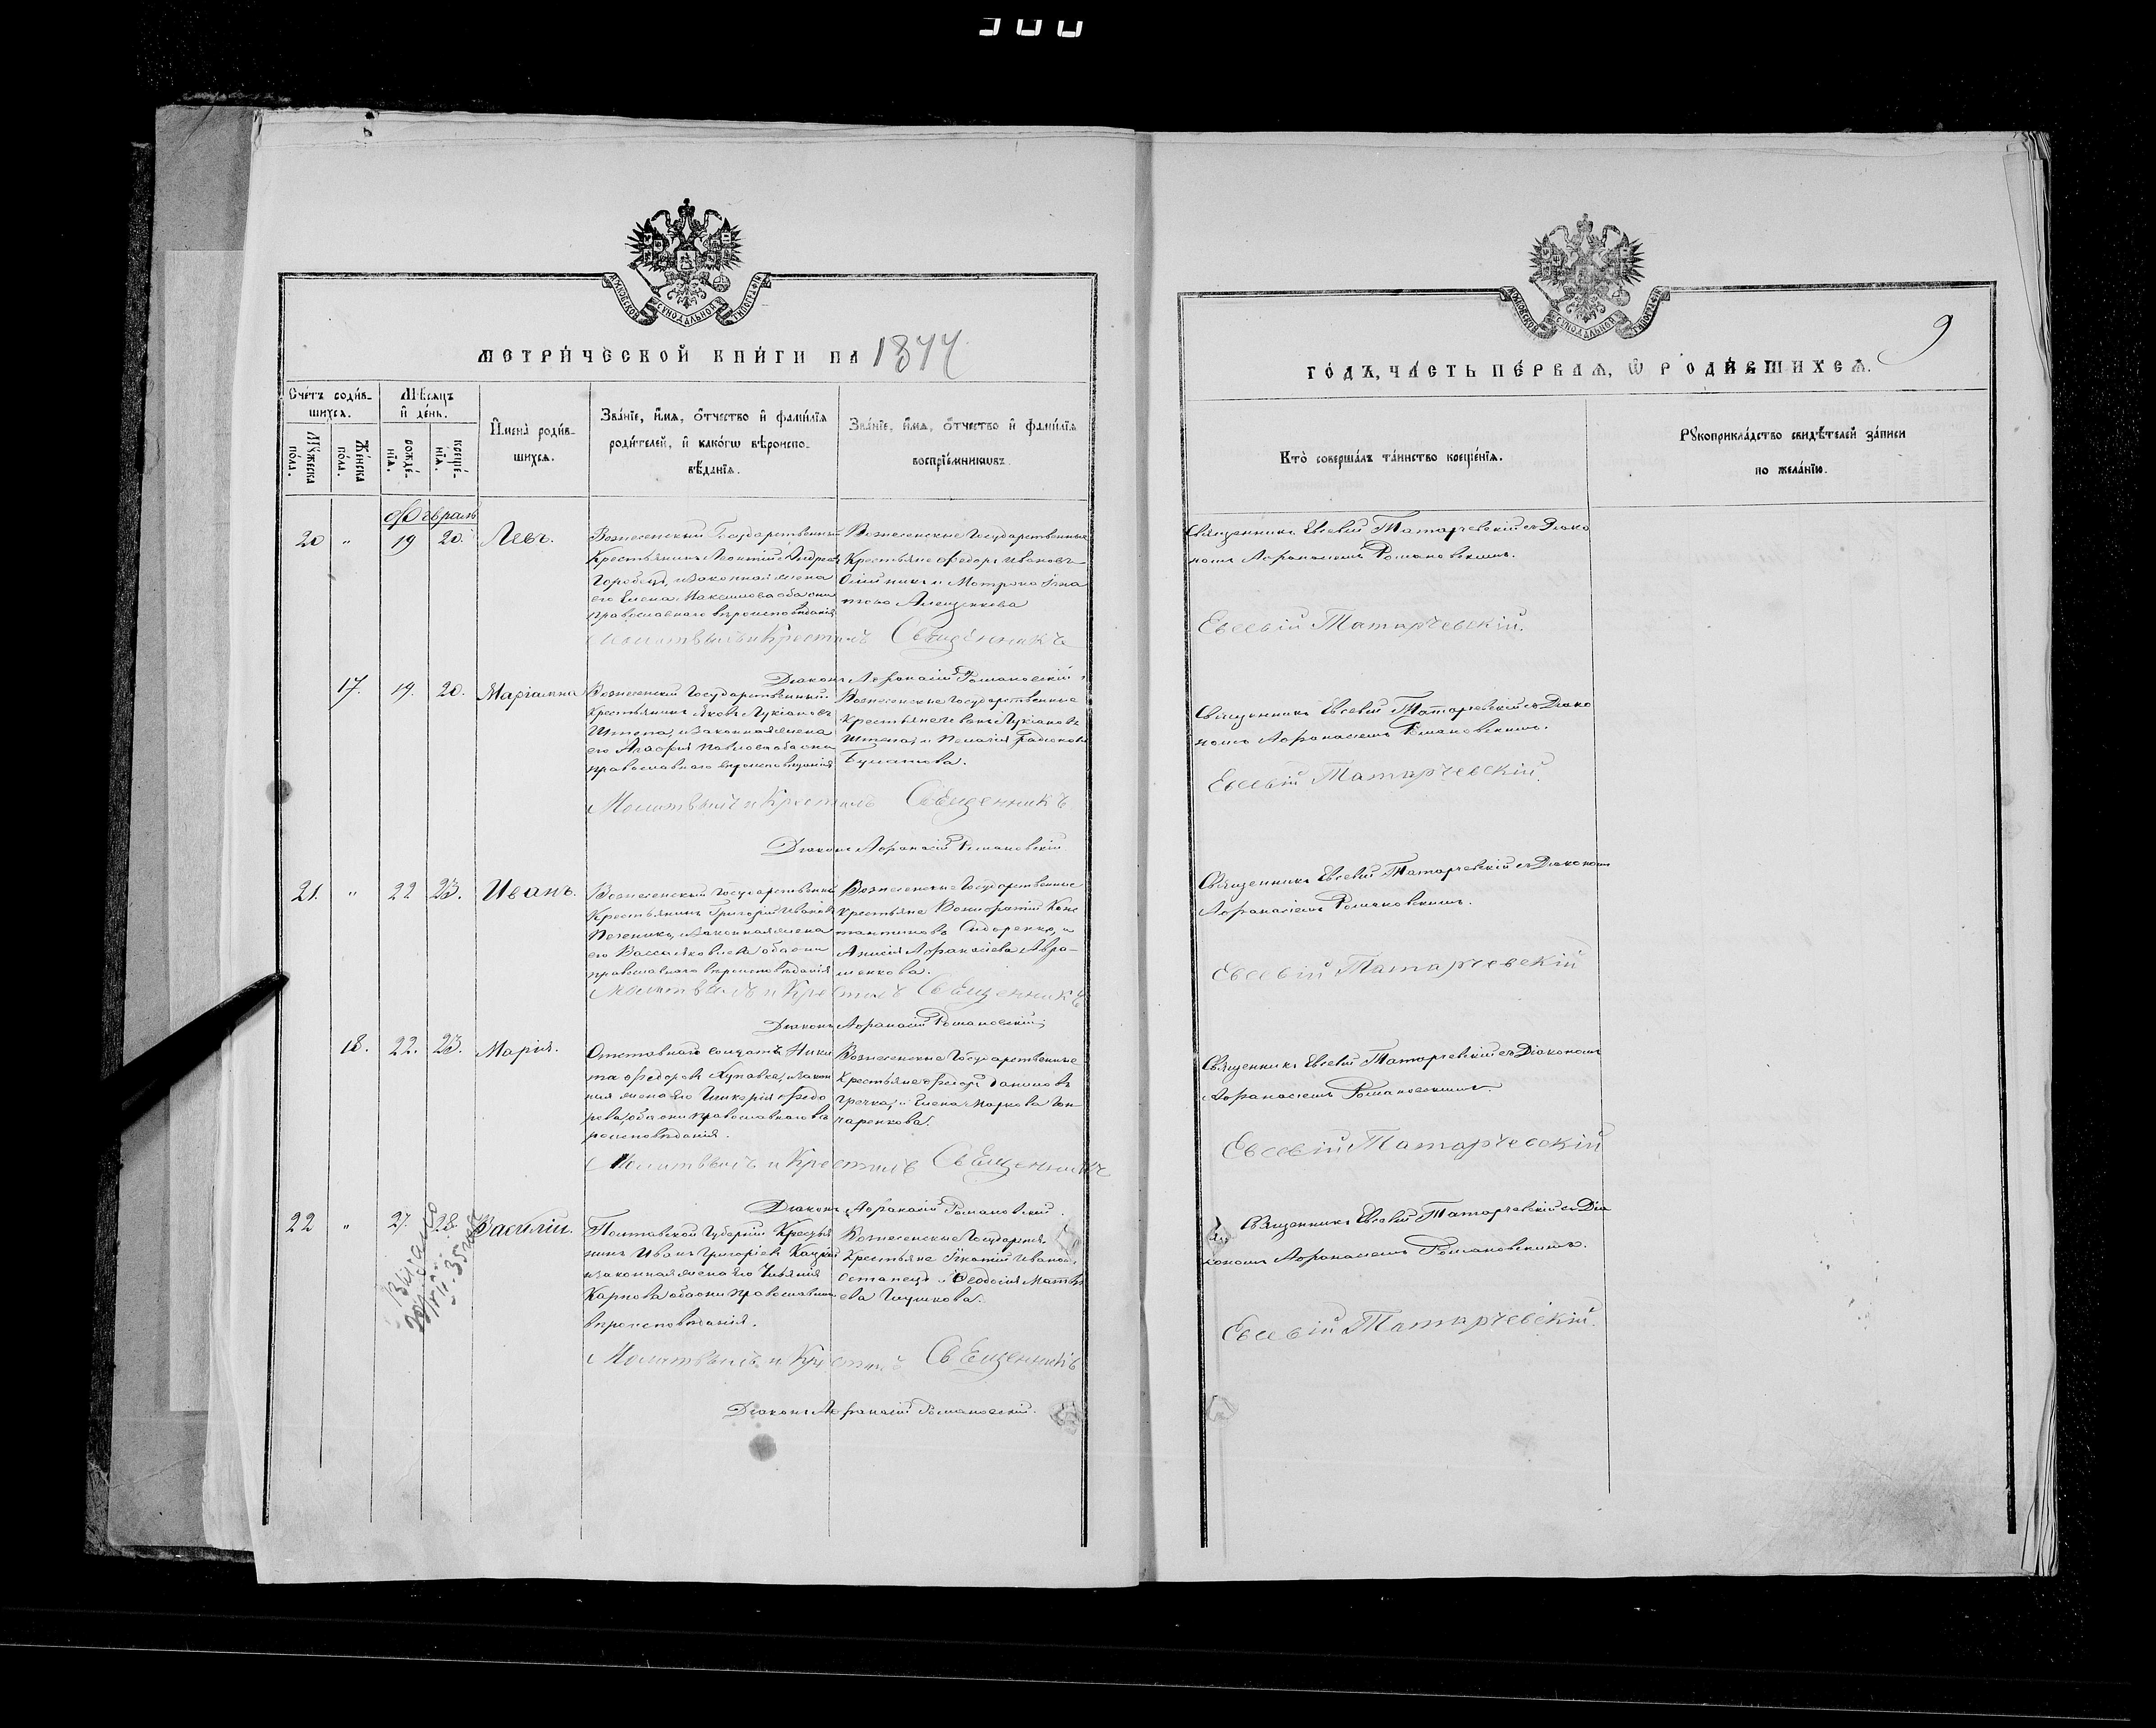 МЕТРИ́ЧЕСКОЙ КНИ́ГИ НА 1877
Сче́тъ роди́в-
шихся.
Мѣ́сяцъ
и҆ де́нь.
И҆мена̀ роди́в-
шихся.
Зва́нїе, и҆́мя, ѻ҆́тчество и҆ фами́лїя
роди́телей, и҆ како́гѡ вѣроиспо-
вѣ́данїя.
Зва́нїе, и҆́мя, ѻ҆́тчество и҆ фами́лїя
воспрїе́мникѡвъ.
Мꙋ́жеска
по́ла.
Же́нска
по́ла.
рожде́-
нїя.
креще́-
нїя.
Февраль
20 " 19 20. Левъ.
Вознесенский Государственный
Крестьянинъ Леонтій Андреевъ
Горобецъ, и законная жена
его Елена Максимова оба они
православнаго вѣроисповѣданія
Вознесенские Государственные
Крестьяне Федоръ Ивановъ
Олийникъ и Матрона Игна
това Алещенкова
Молитвилъ и Крестилъ Священникъ
Діаконъ Афанасій Романовскій
17. 19. 20. Маріамна
Вознесенский Государственный
Крестьянинъ Яковъ Лукіановъ
Штепа, и законная жена
его Агафія Павлова оба они
православнаго вѣроисповѣданія
Вознесенские Государственные
Крестьяне Иванъ Лукіановъ
Штепа, и Пелагія Радионова
Булатова.
Молитвилъ и Крестилъ Священникъ
Діаконъ Афанасій Романовскій
21. " 22 23. Иванъ.
Вознесенский Государственный
Крестьянинъ Григорій Ивановъ
и законная жена
его Васса Яковлева оба они
православнаго вѣроисповѣданія
Вознесенские Государственные
Крестьяне Вонифатій Конс
тантиновъ Сидоренко, и
Анисія Афанасіева Авра-
менкова.
Молитвилъ и Крестилъ Священникъ
Діаконъ Афанасій Романовскій
18. 22. 23. Марія.
Отставнаго солдатъ Ники
та Федоровъ Купавка, и закон
ная жена его Гликерія Федо
рова, оба они православнаго вѣ
роисповѣданія.
Вознесенские Государственные
Крестьяне Федоръ Даниловъ
Гречка, и Елена Маркова Гон
чаренкова.
Молитвилъ и Крестилъ Священникъ
Діаконъ Афанасій Романовский
22 " 27. 28. Василій.
Полтавской Губерніи Крестья
нинъ Иванъ Григоріевъ Кацкой
и законная жена его Ульянія
Карпова оба они православнаго
вѣроисповѣданія.
Вознесенские Государств.
Крестьяне Игнатій Ивановъ
Остапецъ и Феодосія Матвѣ
ева Глушкова.
Молитвилъ и Крестилъ Священникъ
Діаконъ Афанасій Романовскій.
9
ГО́ДЪ, ЧА́СТЬ ПЕ́РВАѦ, Ѡ РОДИ́ВШИХСѦ.
Кто̀ соверша́лъ та́инство креще́нїя.
Рꙋкоприкла́дство свидѣ́телей за́писи
по жела́нїю.
Священникъ Евсевій Татарчевскій съ Діако
номъ Афанасіемъ Романовскимъ.
Евсевій Татарчевскій.
Священникъ Евсевій Татарчевскій съ Діако
номъ Афанасіемъ Романовскимъ.
Евсевій Татарчевскій.
Священникъ Евсевій Татарчевскій съ Діакономъ
Афанасіемъ Романовскимъ.
Евсевій Татарчевскій
Священникъ Евсевій Татарчевскій съ Діакономъ
Афанасіемъ Романовскимъ.
Евсевій Татарчевскій
Священникъ Евсевій Татарчевскій съ Діа
кономъ Афанасіемъ Романовскимъ.
Евсевій Татарчевскій.